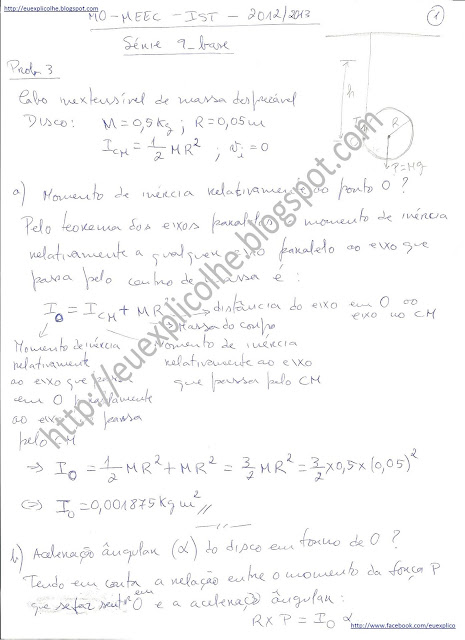 http://euexplicolhe.blogspot.com
MO-MEEC-IST-2012/2013
1
Série 9_base
Prob. 3
Cabo inextensível de massa desprezável
Disco: M=0,5Kg; R=0,05m
I_CM = 1/2 MR²; v_i = 0
h
R
P=Mg
a) Momento de inércia relativamente ao ponto O?
Pelo teorema dos eixos paralelos o momento de inércia
relativamente a qualquer eixo paralelo ao eixo que
passa pelo centro de massa é:
I_O = I_CM + MR² → distância do eixo em O ao
eixo no CM
→ Massa do corpo
Momento de inércia
relativamente
ao eixo que passa
em O paralelamente
ao eixo que passa
pelo CM
Momento de inércia
relativamente ao eixo
que passa pelo CM
⇒ I_O = 1/2 MR² + MR² = 3/2 MR² = 3/2 × 0,5 × (0,05)²
⇔ I_O = 0,001875 Kg m² //
b) Aceleração ângular (α) do disco em torno de O?
Tendo em conta a relação entre o momento da força P
que se faz sentir em O e a aceleração ângular:
R × P = I_O α
http://euexplicolhe.blogspot.com
http://www.facebook.com/euexplico